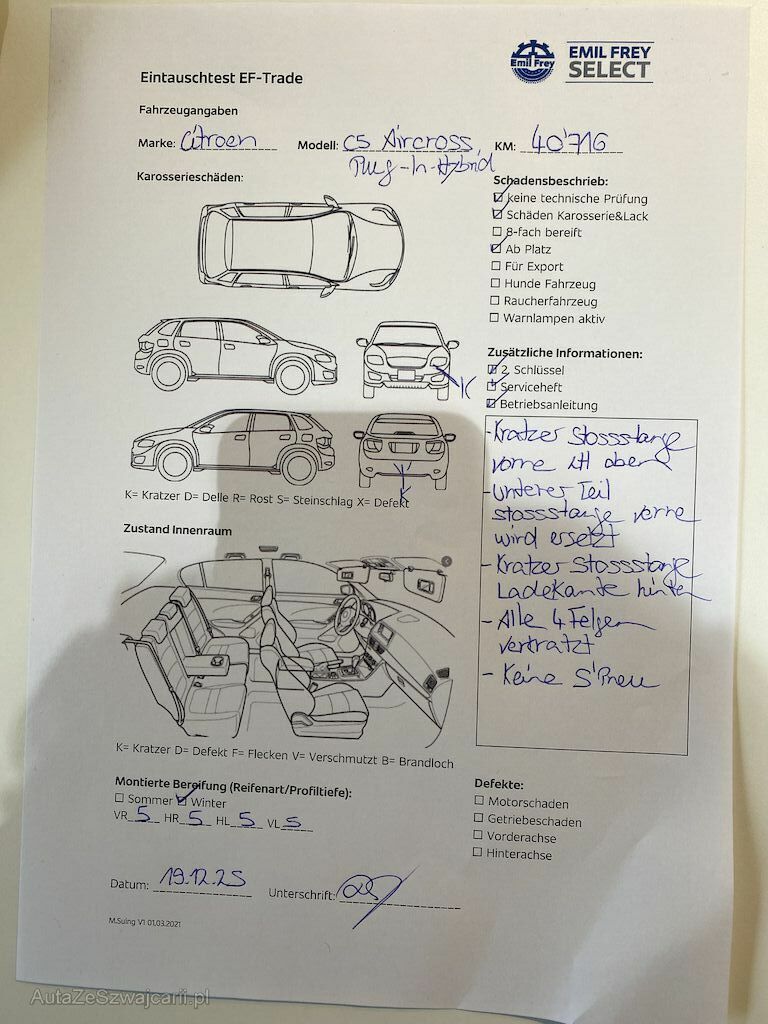 Emil Frey
EMIL FREY
SELECT
Eintauschtest EF-Trade
Fahrzeugangaben
Marke: Citroen Modell: C5 Aircross KM: 40'716
Plug-In-Hybrid
Karosserieschäden:
K
K
K= Kratzer D= Delle R= Rost S= Steinschlag X= Defekt
Schadensbeschrieb:
☑ keine technische Prüfung
☑ Schäden Karosserie&Lack
☐ 8-fach bereift
☑ Ab Platz
☐ Für Export
☐ Hunde Fahrzeug
☐ Raucherfahrzeug
☐ Warnlampen aktiv
Zusätzliche Informationen:
☑ 2 Schlüssel
☑ Serviceheft
☑ Betriebsanleitung
- Kratzer Stossstange
vorne oben
- Unterer Teil
Stossstange vorne
wird ersetzt
- Kratzer Stossstange
Ladekante hinten
- Alle 4 Felgen
verkratzt
- Keine S'Pneu
Zustand Innenraum
K= Kratzer D= Defekt F= Flecken V= Verschmutzt B= Brandloch
Montierte Bereifung (Reifenart/Profiltiefe):
☐ Sommer ☑ Winter
VR 5 HR 5 HL 5 VL 5
Defekte:
☐ Motorschaden
☐ Getriebeschaden
☐ Vorderachse
☐ Hinterachse
Datum: 19.12.25 Unterschrift:
M.Suing V1 01.03.2021
AutaZeSzwajcarii.pl